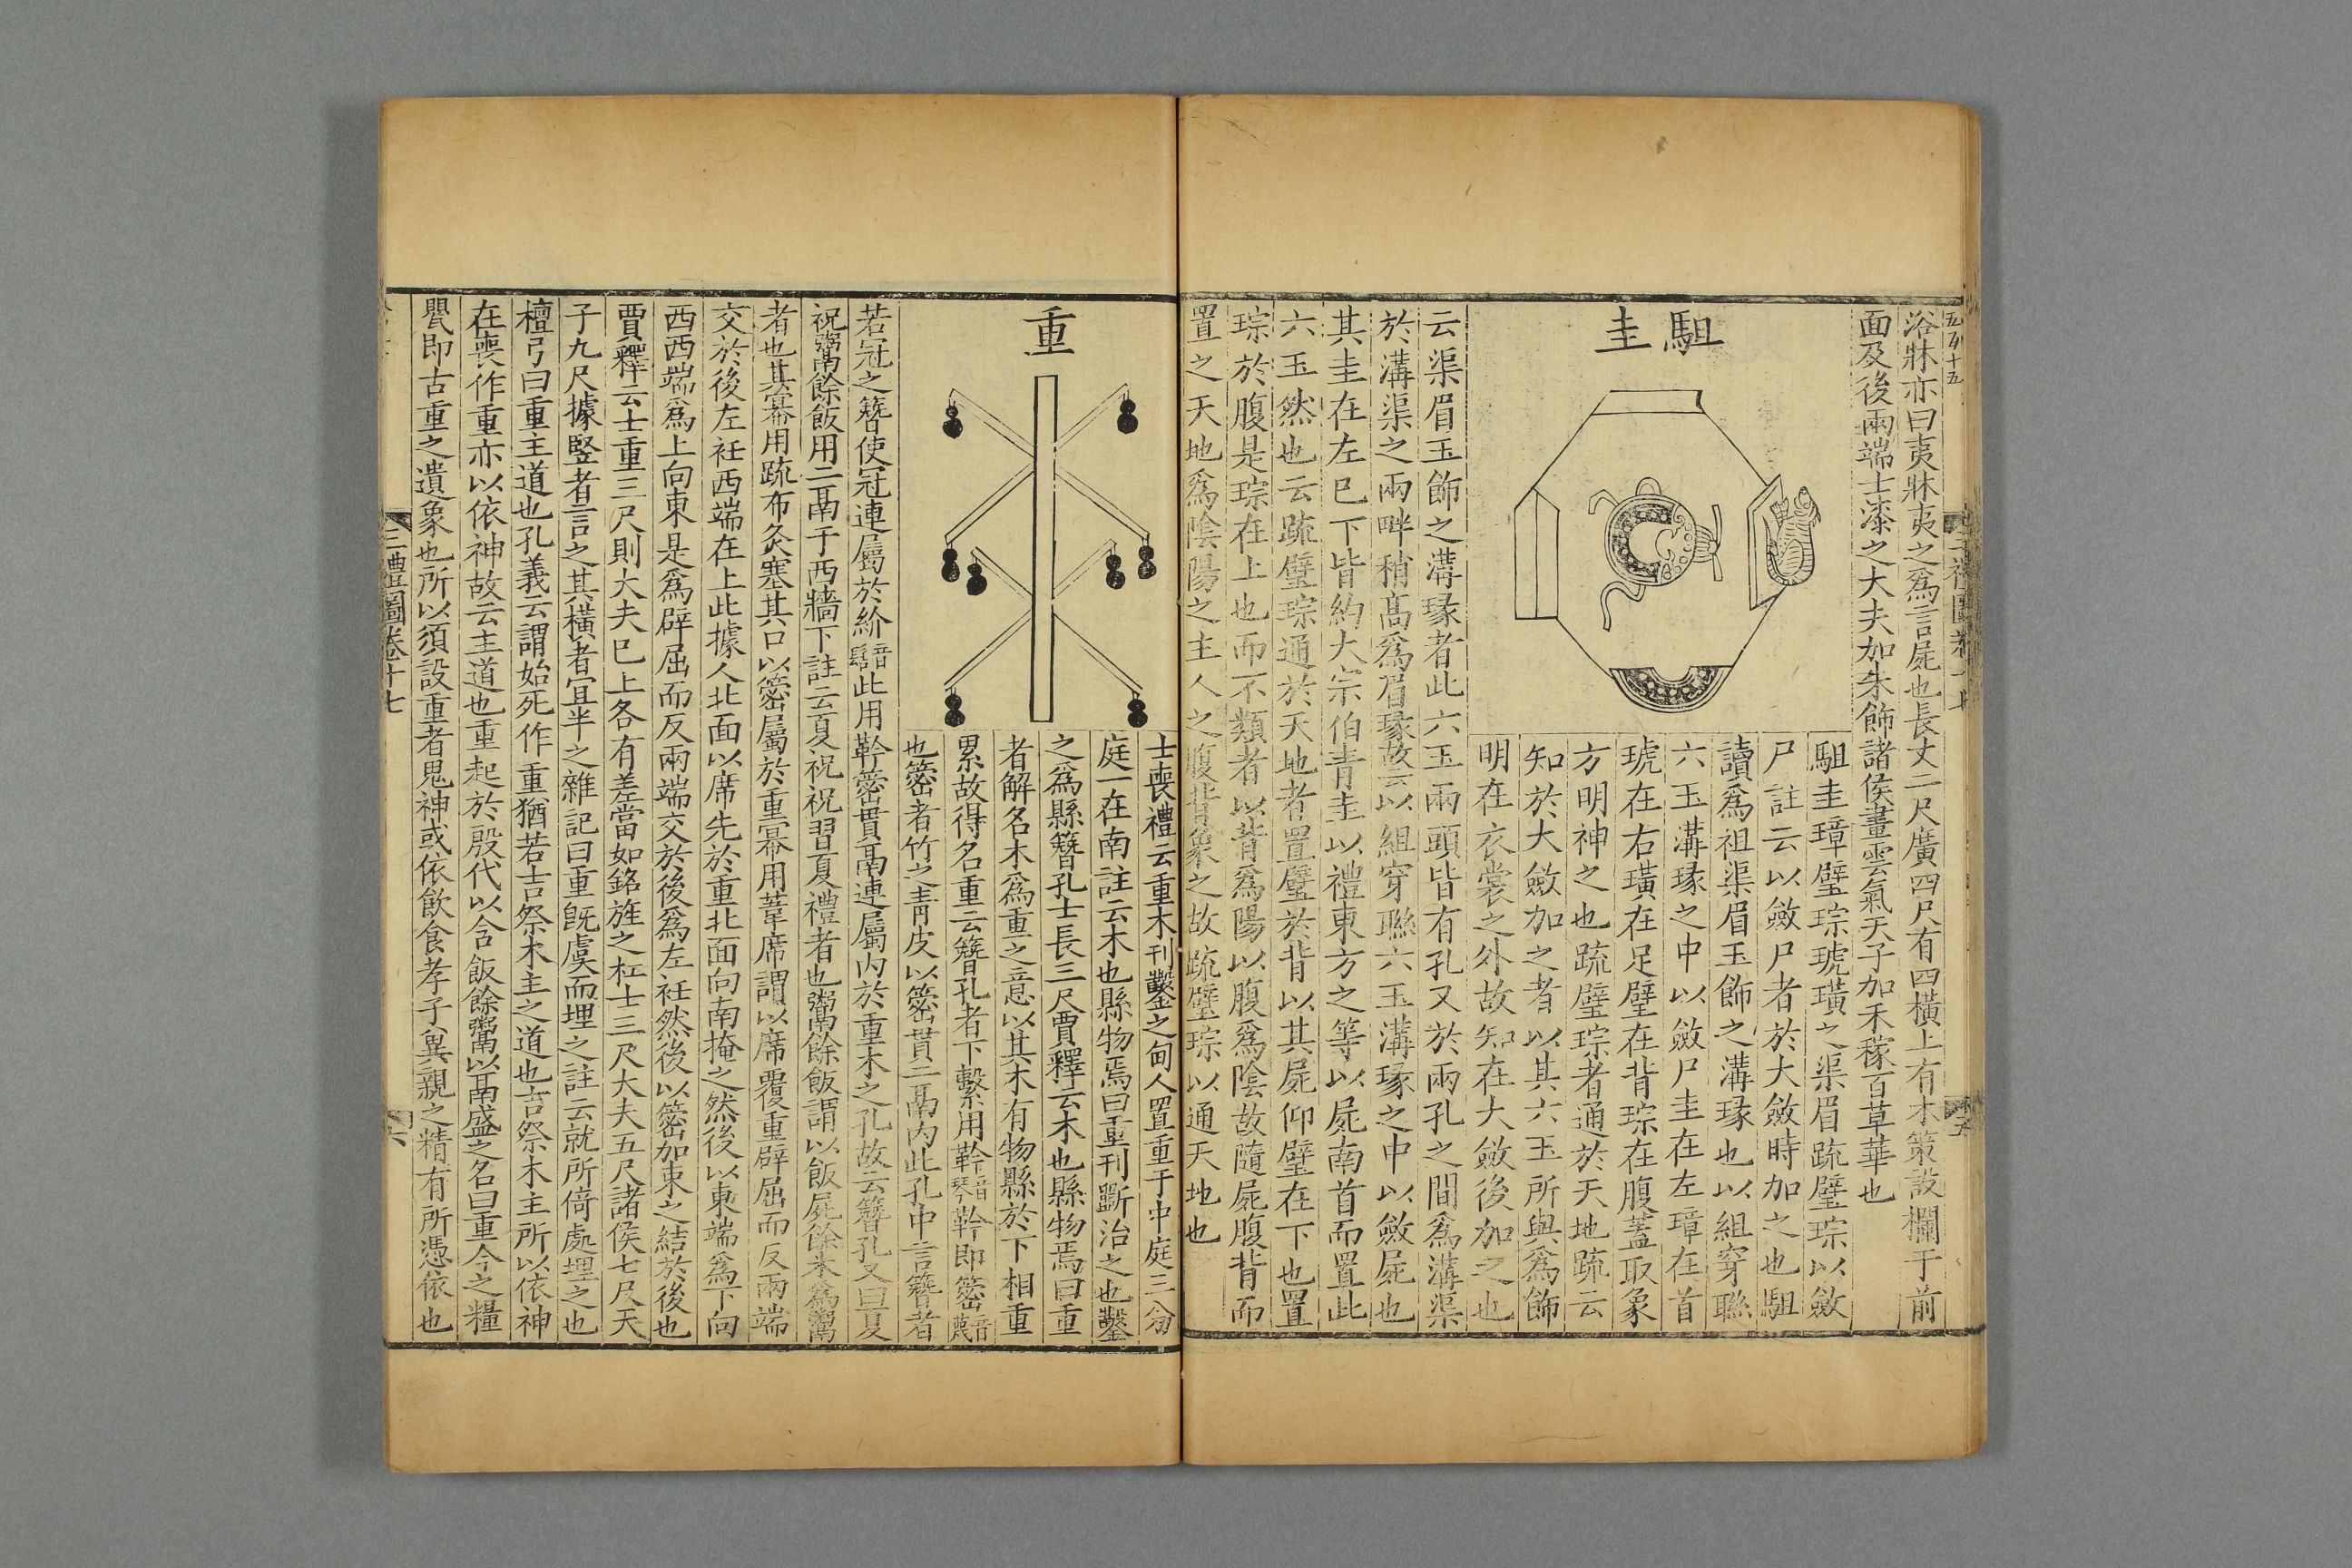 浴牀亦曰夷牀夷之爲言屍也長丈二尺廣四尺有四橫上有木策設欄于前
面及後兩端士漆之大夫加朱飾諸侯畫雲氣天子加禾稼百草華也
駔圭
駔圭璋璧琮琥璜之渠眉疏璧琮以斂
尸註云以斂尸者於大斂時加之也駔
讀爲祖渠眉玉飾之溝瑑也以組穿聯
六玉溝瑑之中以斂尸圭在左璋在首
琥在右璜在足璧在背琮在腹蓋取象
方明神之也疏璧琮者通於天地疏云
知於大斂加之者以其六玉所與爲飾
明在衣裳之外故知在大斂後加之也
云渠眉玉飾之溝瑑者此六玉兩頭皆有孔又於兩孔之間爲溝渠
於溝渠之兩畔稍高爲眉瑑故云以組穿聯六玉溝瑑之中以斂屍也
其圭在左已下皆約大宗伯青圭以禮東方之等以屍南首而置此
六玉然也云疏璧琮通於天地者置璧於背以其屍仰璧在下也置
琮於腹是琮在上也而不類者以背爲陽以腹爲陰故隨屍腹背而
置之天地爲陰陽之主人之腹背象之故疏璧琮以通天地也
重
士喪禮云重木刊鑿之甸人置重于中庭三分
庭一在南註云木也縣物焉曰重刊斲治之也鑿
之爲縣簪孔士長三尺賈釋云木也縣物焉曰重
者解名木爲重之意以其木有物縣於下相重
累故得名重云簪孔者下繫用靲音琴靲即䈼音蔑
也䈼者竹之青皮以䈼貫二鬲內此孔中言簪者
若冠之簪使冠連屬於紒音髻此用靲䈼貫鬲連屬內於重木之孔故云簪孔又曰夏
祝鬻餘飯用二鬲于西牆下註云夏祝祝習夏禮者也鬻餘飯謂以飯屍餘米爲鬻
者也其冪用疏布灸塞其口以䈼屬於重冪用葦席謂以席覆重辟屈而反兩端
交於後左衽西端在上此據人北面以席先於重北面向南掩之然後以東端爲下向
西西端爲上向東是爲辟屈而反兩端交於後爲左衽然後以䈼加束之結於後也
賈釋云士重三尺則大夫已上各有差當如銘旌之杠士三尺大夫五尺諸侯七尺天
子九尺據豎者言之其橫者宜半之雜記曰重旣虞而埋之註云就所倚處埋之也
檀弓曰重主道也孔義云謂始死作重猶若吉祭木主之道也吉祭木主所以依神
在喪作重亦以依神故云主道也重起於殷代以含飯餘鬻以鬲盛之名曰重今之糧
甖即古重之遺象也所以須設重者鬼神或依飲食孝子冀親之精有所憑依也
三禮圖卷十七
六